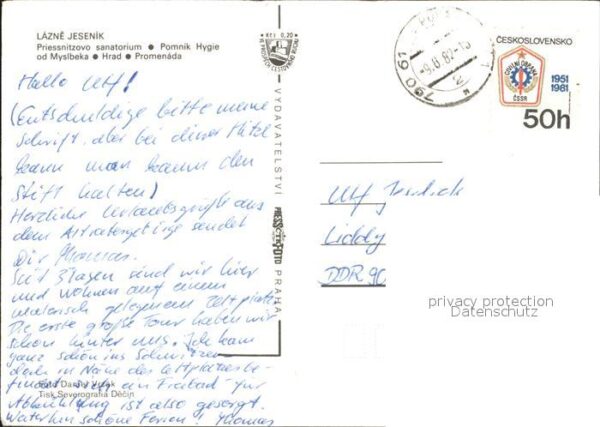 LÁZNĚ JESENÍK
Priessnitzovo sanatorium ● Pomník Hygie
od Myslbeka ● Hrad ● Promenáda
Hallo Ulf!
(Entschuldige bitte meine
Schrift, aber bei dieser Hitze
kann man kaum den
Stift halten)
Herzliche Urlaubsgrüße aus
dem Altvatergebirge sendet
Dir Thomas.
Seit 3 Tagen sind wir hier
und wohnen auf einem
malerisch gelegenem Zeltplatz
Die erste große Tour haben wir
schon hinter uns. Ich kam
ganz schön ins Schwitzen
doch in Nähe des Zeltplatzes be-
findet sich ein Freibad - für
Abkühlung ist also gesorgt.
Weiterhin schöne Ferien! Thomas
Foto Daniel
Tisk Severografia Děčín
Kčs 0,20
VYDAVATELSTVÍ
PRESSFOTO
PRAHA
790 61
-9.8.82-15
ČESKOSLOVENSKO
CIVILNÍ OBRANA
ČSSR
1951
1981
50h
Ulf
DDR 90
privacy protection
Datenschutz